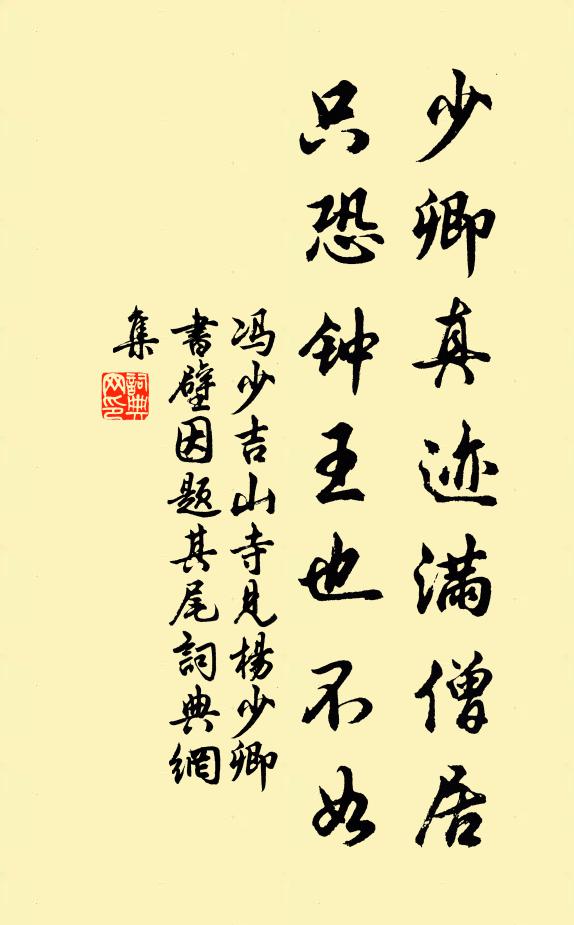 少卿真迹满僧居
只恐钟王也不如
冯少吉山寺见楊少卿
書壁因题其尾詞典網
集
詞典
网印